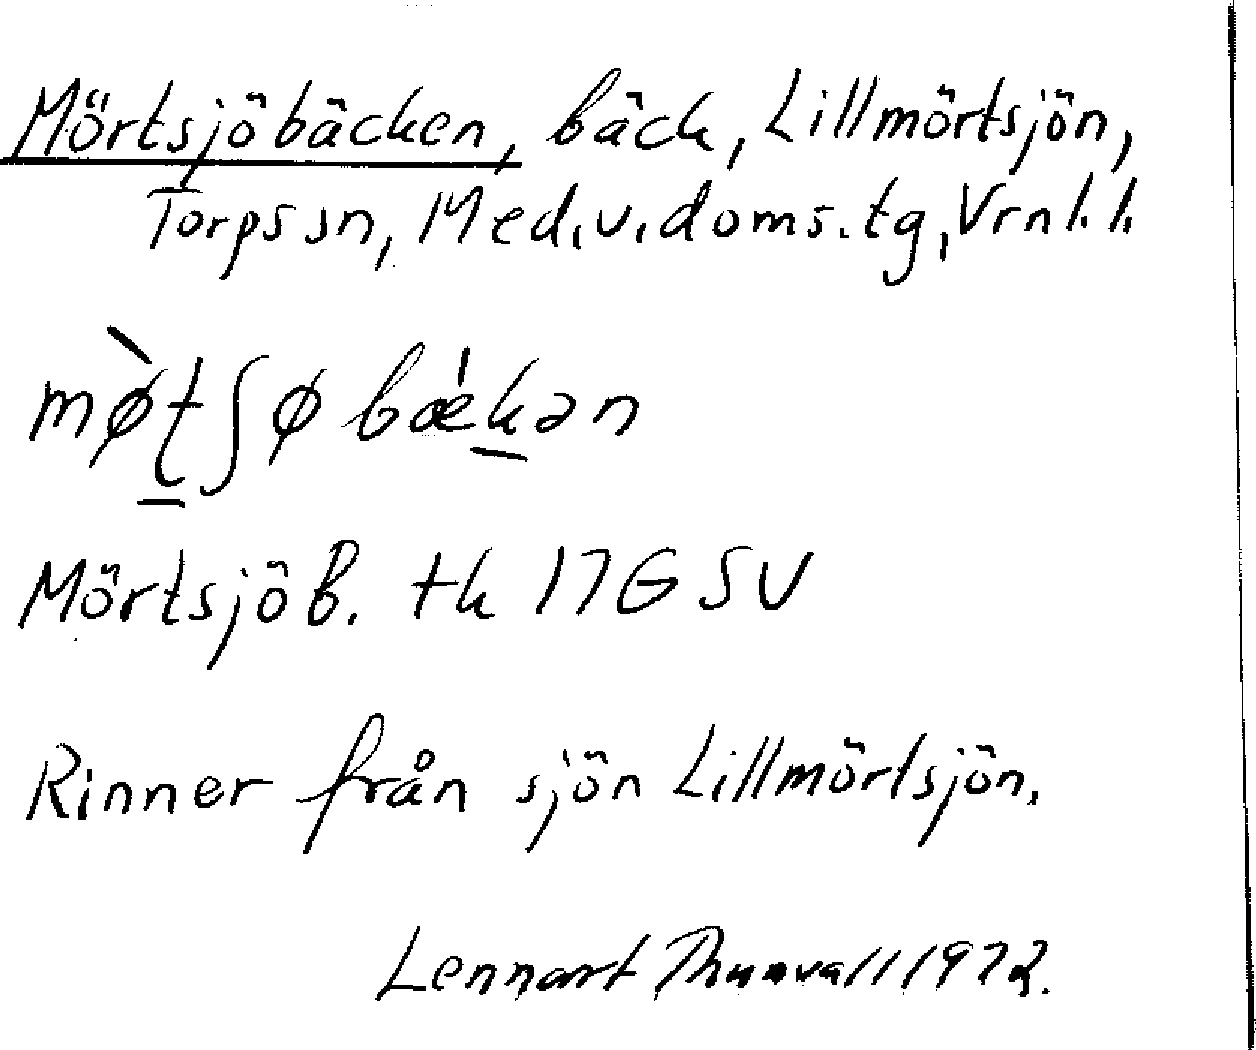 Mörtsjöbäcken, bäck, Lillmörtsjön,
Torps sn, Med.v.doms.tg, Vrnl.l.
mø̀ʈʃøbǽkən
Mörtsjö B. tk 17G SV
Rinner från sjön Lillmörtsjön.
Lennart Thunvall 1972.